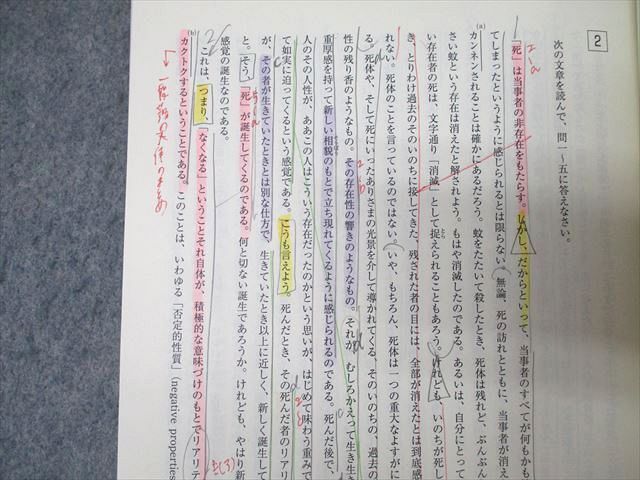 2
次の文章を読んで、問一～五に答えなさい。
「死」は当事者の非存在をもたらす。しかし、だからといって、当事者のすべてが何もかも
てしまったというように感じられるとは限らない。無論、死の訪れとともに、当事者が消え
(a)
カンネンされることは確かにあるだろう。蚊をたたいて殺したとき、死体は残れど、ぶんぶん
さい蚊という存在は消えたと解されよう。もはや消滅したのである。あるいは、自分にとって
い存在者の死は、文字通り「消滅」として捉えられることもあろう。けれども、いのちが死し
き、とりわけ過去のそのいのちに接してきた、残された者の目には、全部が消えたとは到底感
れない。死体のことを言っているのではない。いや、もちろん、死体は一つの重大なよすがに
る。死体や、そして死にいったありさまの光景を介して導かれてくる、そのいのちの、過去の
性の残り香のようなもの。その存在性の響きのようなもの。それが、むしろかえって生き生き
重厚感を持って新しい相貌のもとで立ち現れてくるように感じられるのである。死んだ後で、
人のその人性が、ああこの人はこういう存在だったのかという思いが、はじめて味わう重みで
て如実に迫ってくるという感覚である。こうも言えよう。死んだとき、その死んだ者のリアリ
が、その者が生きていたときとは別な仕方で、生きていたとき以上に近しく、新しく誕生して
と。そう、「死」が誕生してくるのである。何と切ない誕生であろうか。けれども、やはり新
感覚の誕生なのである。
これは、つまり、「なくなる」ということそれ自体が、積極的な意味づけのもとでリアリテ
(b)
カクトクするということである。このことは、いわゆる「否定的性質」(negative properties